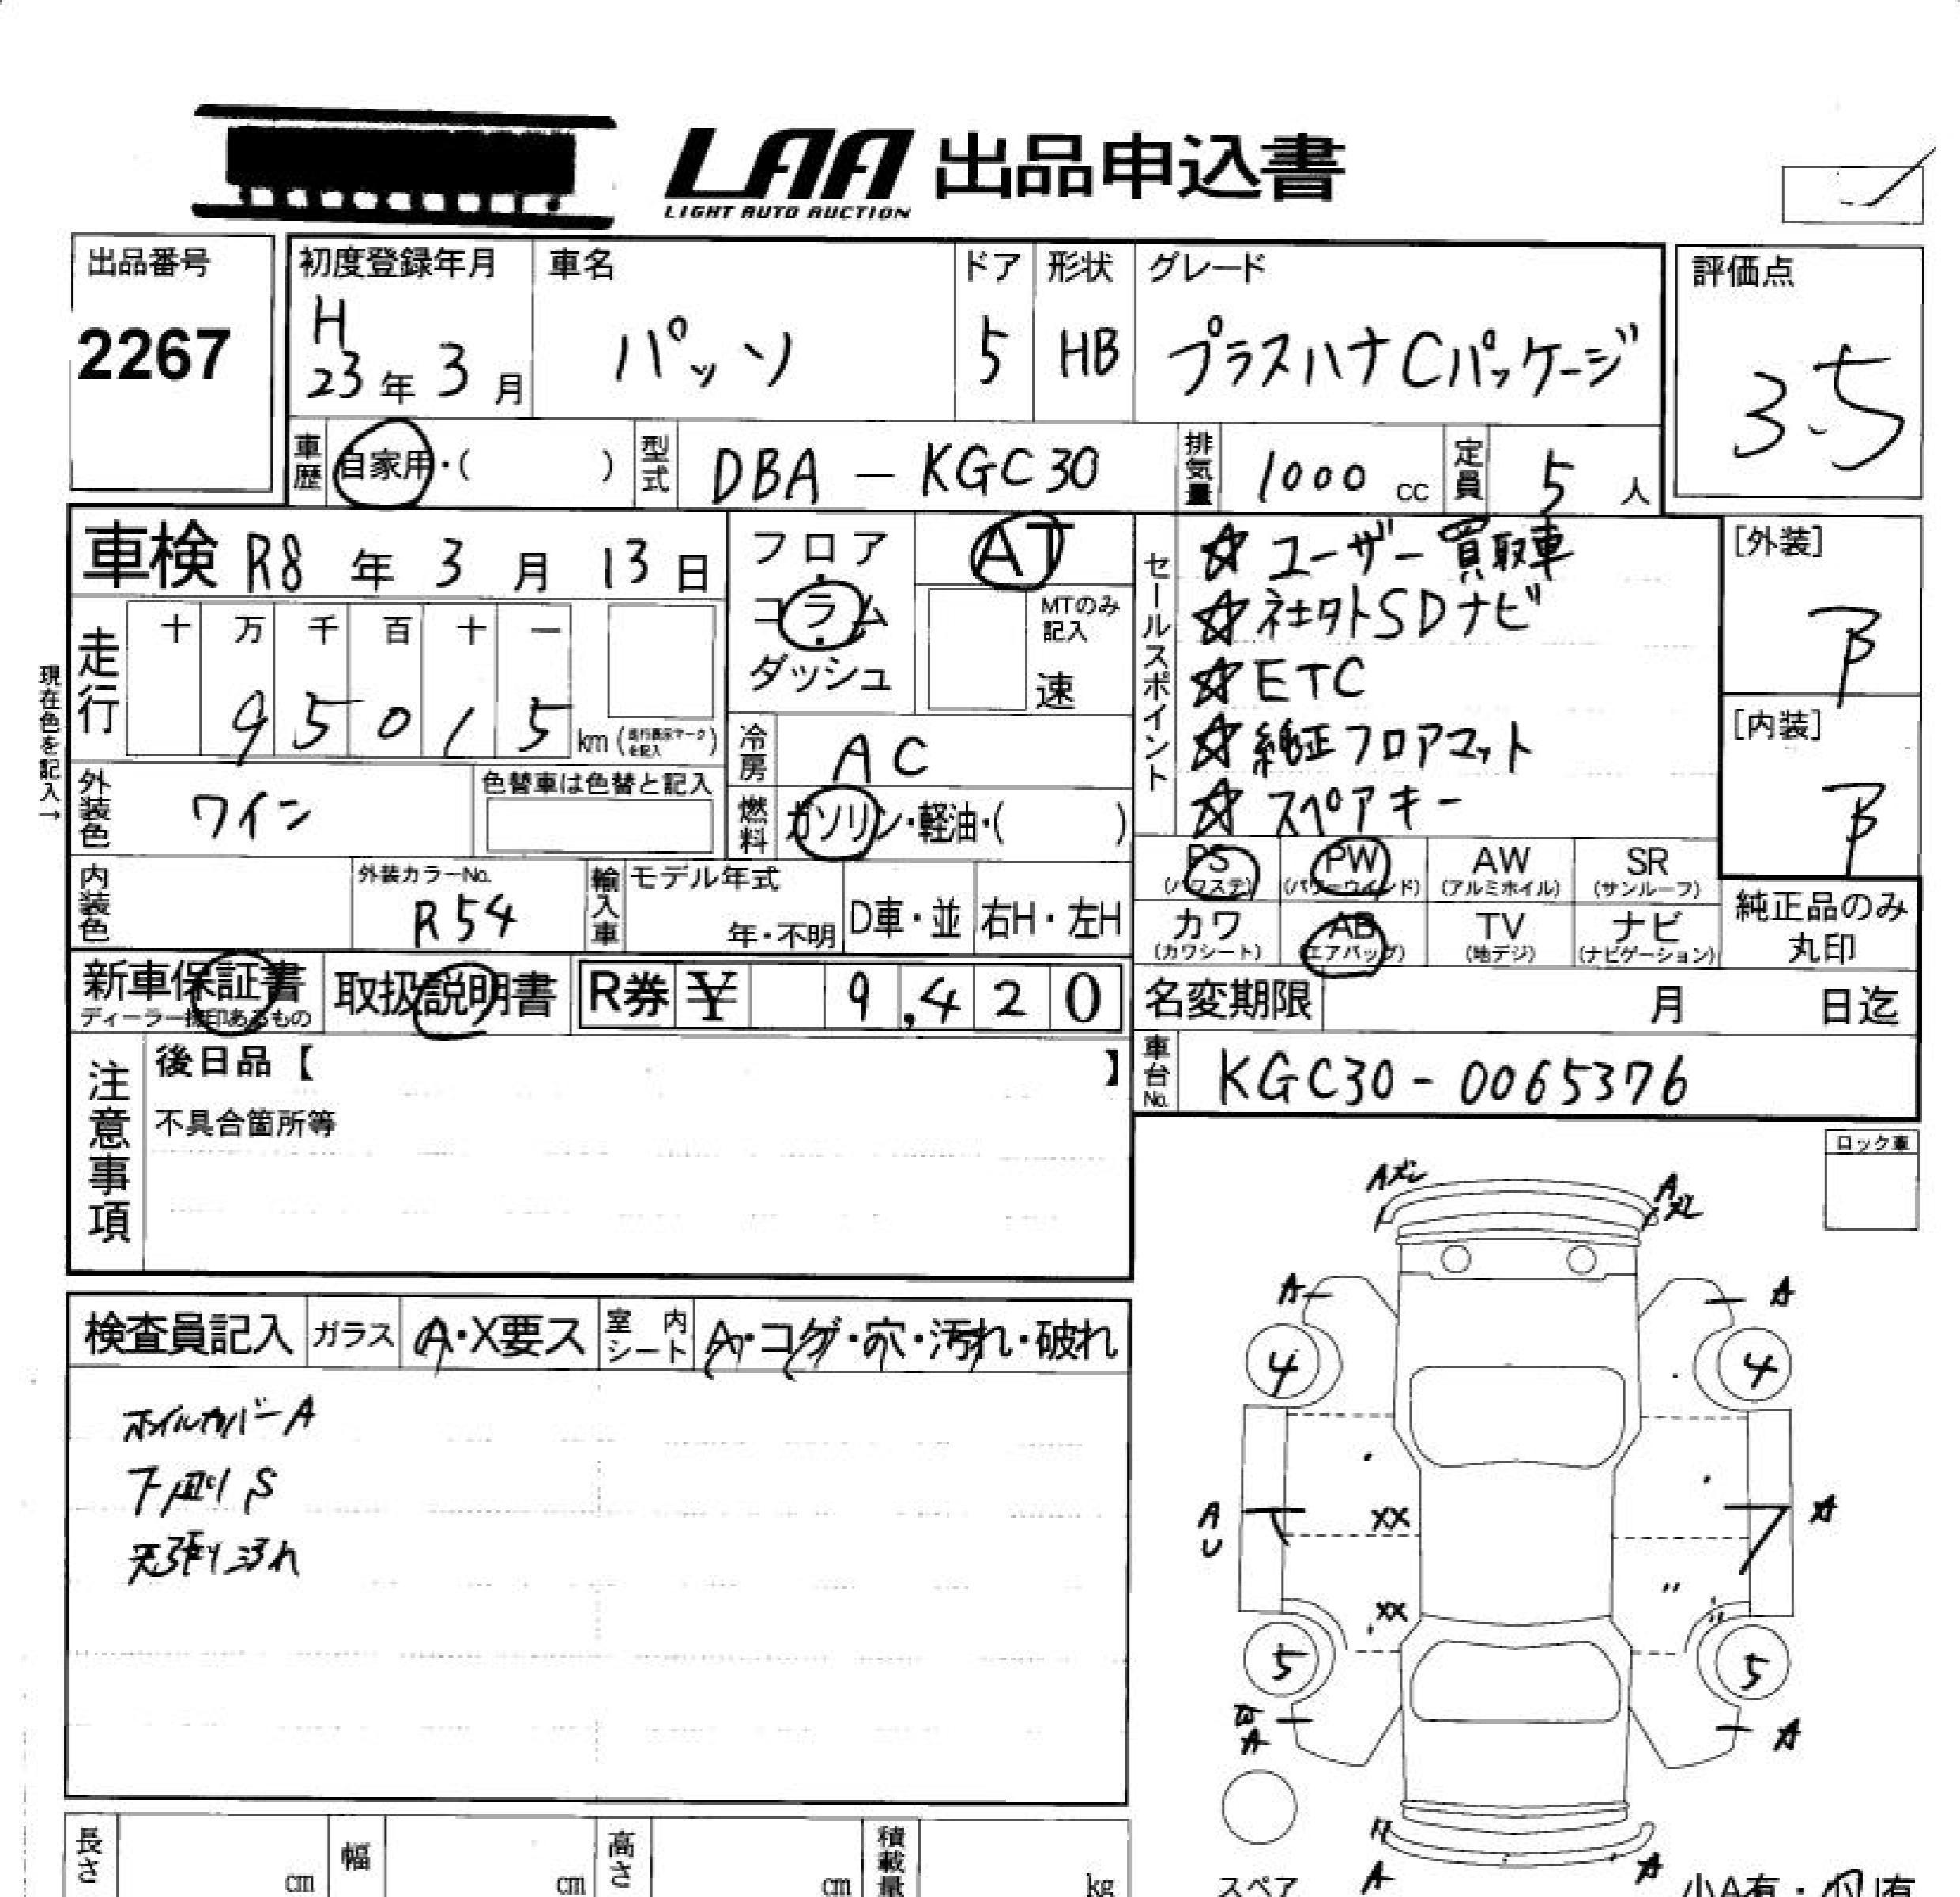 LAA 出品申込書
LIGHT AUTO AUCTION
出品番号
2267
初度登録年月
H
23年3月
車名
パッソ
ドア
5
形状
HB
グレード
プラスハナCパッケージ
評価点
3.5
車歴
自家用・( )
型式
DBA - KGC30
排気量
1000 cc
定員
5 人
車検 R8 年 3 月 13 日
現在色を記入→
走行
十 万 千 百 十 一
9 5 0 1 5 km (走行表示マークを記入)
フロア
コラム
ダッシュ
AT
MTのみ記入
速
冷房
AC
燃料
ガソリン・軽油・( )
セールスポイント
☆ユーザー買取車
☆社外SDナビ
☆ETC
☆純正フロアマット
☆スペアキー
[外装]
B
[内装]
B
外装色
ワイン
色替車は色替と記入
内装色
外装カラーNo.
R54
輸入車
モデル年式
年・不明
D車・並
右H・左H
PS
(パワステ)
PW
(パワーウインド)
AW
(アルミホイル)
SR
(サンルーフ)
カワ
(カワシート)
AB
(エアバッグ)
TV
(地デジ)
ナビ
(ナビゲーション)
純正品のみ
丸印
新車保証書
ディーラー捺印あるもの
取扱説明書
R券 ¥ 9,420
名変期限 月 日迄
車台No.
KGC30-0065376
注意事項
後日品【 】
不具合箇所等
ロック車
検査員記入
ガラス
A・X要ス
室内シート
A・コゲ・穴・汚れ・破れ
ホイルカバーA
下回りS
天張り汚れ
Aズレ
Aズレ
A
A
4
4
A
U
XX
A
XX
5
5
A
A
A
A
スペア
長さ
cm
幅
cm
高さ
cm
積載量
kg
小A有・小U有